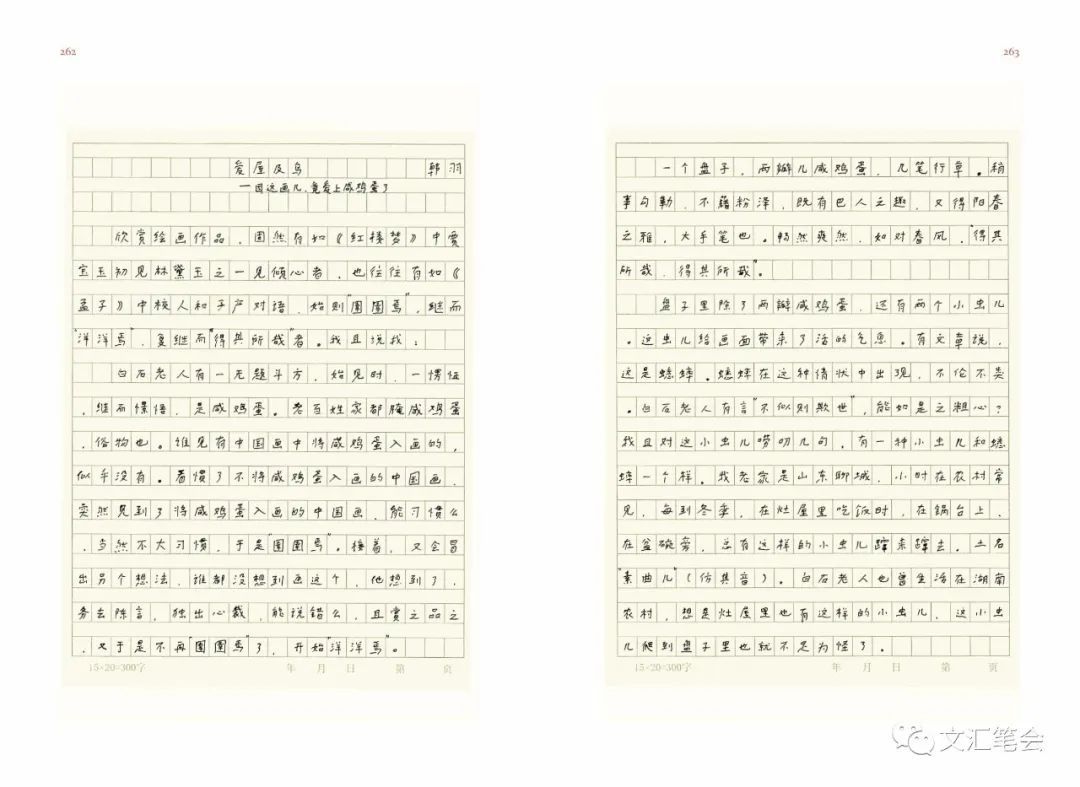 262
爱屋及乌 韩羽
—因这画儿,竟爱上咸鸡蛋了
欣赏绘画作品,固然有如《红楼梦》中贾
宝玉初见林黛玉之一见倾心者,也往往有如《
孟子》中校人和子产对语,始则"圉圉焉",继而
"洋洋焉",复继而"得其所哉"者。我且说找:
白石老人有一无题斗方,始见时,一愣怔
,继而憬悟,是咸鸡蛋。老百姓家都腌咸鸡蛋
,俗物也。谁见有中国画中将咸鸡蛋入画的,
似乎没有。看惯了不将咸鸡蛋入画的中国画,
突然见到了将咸鸡蛋入画的中国画,能习惯么
,当然不大习惯,于是"圉圉焉"。接着,又会冒
出另个想法,谁都没想到画这个,他想到了,
务去陈言,独出心裁,能说错么,且赏之品之
,又于是不再"圉圉焉"了,开始"洋洋焉"。
15×20=300字 年 月 日 第 页
263
一个盘子,两瓣儿咸鸡蛋,几笔行草。稍
事勾勒,不藉粉泽,既有巴人之趣,又得阳春
之雅,大手笔也。畅然爽然,如对春风,"得其
所哉,得其所哉"。
盘子里除了两瓣咸鸡蛋,还有两个小虫儿
。这虫儿给画面带来了活的气息。有文章说,
这是蟋蟀。蟋蟀在这种情状中出现,不伦不类
。白石老人有言"不似则欺世",能如是之粗心?
我且对这小虫儿唠叨几句,有一种小虫儿和蟋
蟀一个样。我老家是山东聊城,小时在农村常
见,每到冬季,在灶屋里吃饭时,在锅台上、
在盆碗旁,总有这样的小虫儿蹿来蹿去。土名
"素曲儿"(仿其音)。白石老人也曾生活在湖南
农村,想是灶屋里也有这样的小虫儿,这小虫
儿爬到盘子里也就不足为怪了。
15×20=300字 年 月 日 第 页
文汇笔会